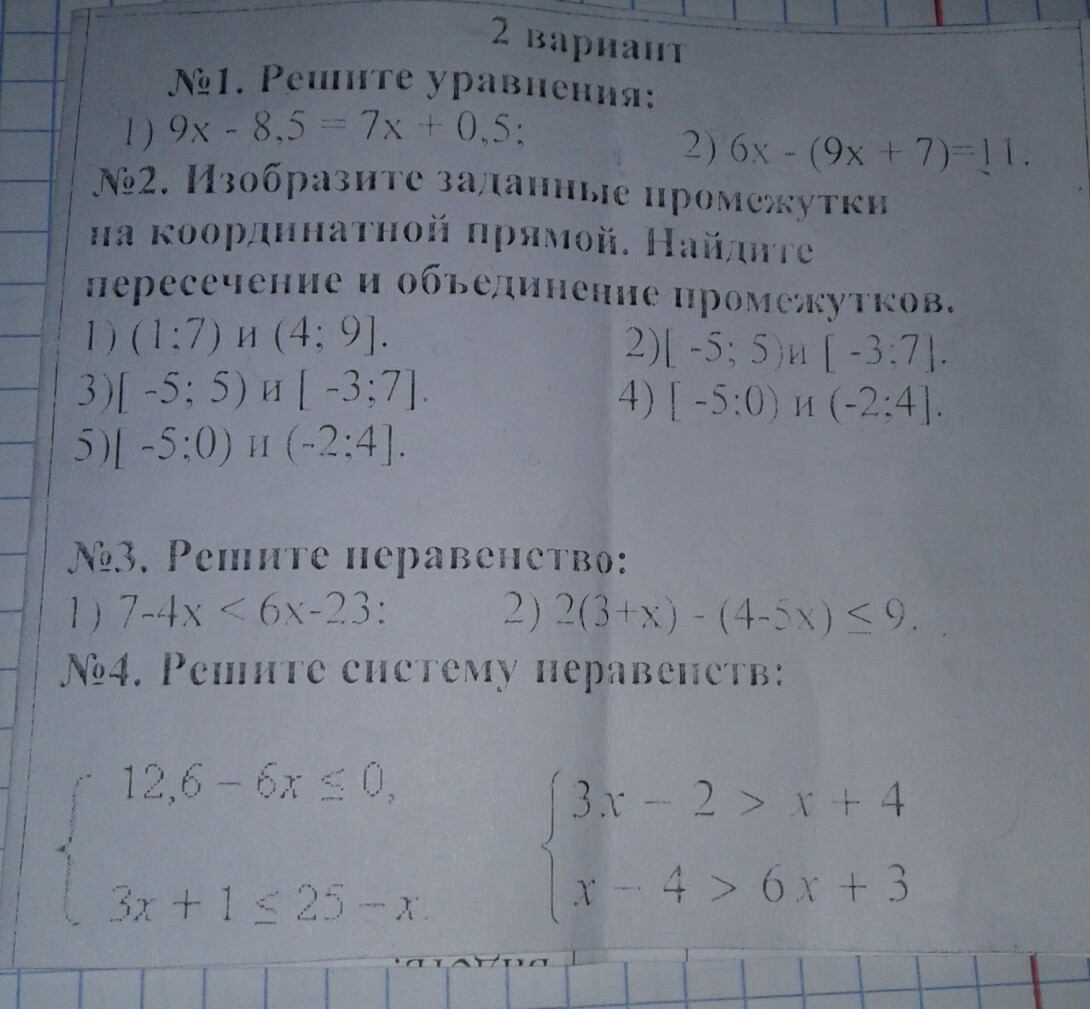 2 вариант
№1. Решите уравнения:
1) 9х - 8,5 = 7х + 0,5; 2) 6х - (9х + 7)=11.
№2. Изобразите заданные промежутки
на координатной прямой. Найдите
пересечение и объединение промежутков.
1) (1;7) и (4; 9]. 2)[ -5; 5)и [ -3;7].
3)[ -5; 5) и [ -3;7]. 4) [ -5;0) и (-2;4].
5)[ -5;0) и (-2;4].
№3. Решите неравенство:
1) 7-4х < 6х-23; 2) 2(3+х) - (4-5х) ≤ 9.
№4. Решите систему неравенств:
12,6 – 6x ≤ 0, 3x – 2 > x + 4
3x + 1 ≤ 25 – x. x – 4 > 6x + 3